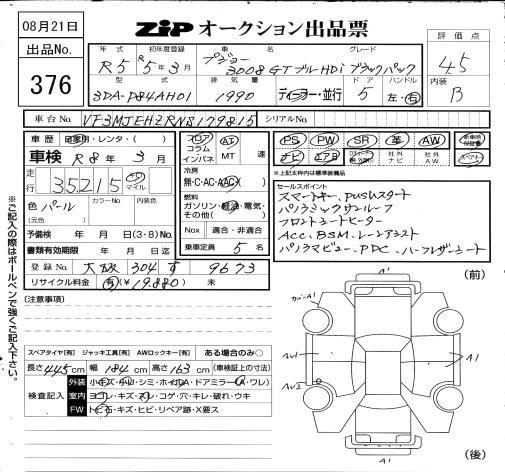 08月21日
ZIP オークション出品票
出品No.
376
評価点
4.5
内装
B
年式 初年度登録 車名 グレード
R5 R5年3月 プジョー 3008 GT ブルーHDi ブラックパック
型式 排気量 ドア ハンドル
3DA-P84AH01 1990 ディーラー・並行 5 左・右
車台No. VF3MJEHZRNS179815 シリアルNo.
車歴 自家用・レンタ・( )
車検 R8年3月
走行 35215 km マイル
色 パール カラーNo. 内装色
(元色)
予備検 年 月 日(3・8)No.
書類有効期限 年 月 日迄
フロア コラム インパネ
AT MT 速
冷房
無・C・AC・AAC
燃料
ガソリン・軽油・電気・その他( )
Nox 適合・非適合
乗車定員 5 名
登録No. 大阪 304 す 9673
リサイクル料金 有(¥19,880) 未
PS PW SR 革 AW 新車時保証書
ナビ エアB 社外ナビ 社外AW スペアキー
※上記太枠内は標準装備品
セールスポイント
スマートキー、PUSHスタート
パノラミックサンルーフ
フロントシートヒーター
ACC、BSM、レーンアシスト
パノラマビュー、PDC、ハーフレザーシート
※ご記入の際はボールペンで強くご記入下さい。
(注意事項)
スペアタイヤ[有] ジャッキ工具[有] AWロックキー[有] ある場合のみ○
長さ445cm 幅184cm 高さ163cm (車検証上の寸法)
検査記入
外装 小キズ・小凹・シミ・ホイールA・ドアミラー(A・ワレ)
室内 ヨゴレ・キズ・スレ・コゲ・穴・キレ・破れ・ウキ
FW トビ石・キズ・ヒビ・リペア跡・X要ス
(前)
A1
カバーA1
AW1
A1
AW2
A1
(後)